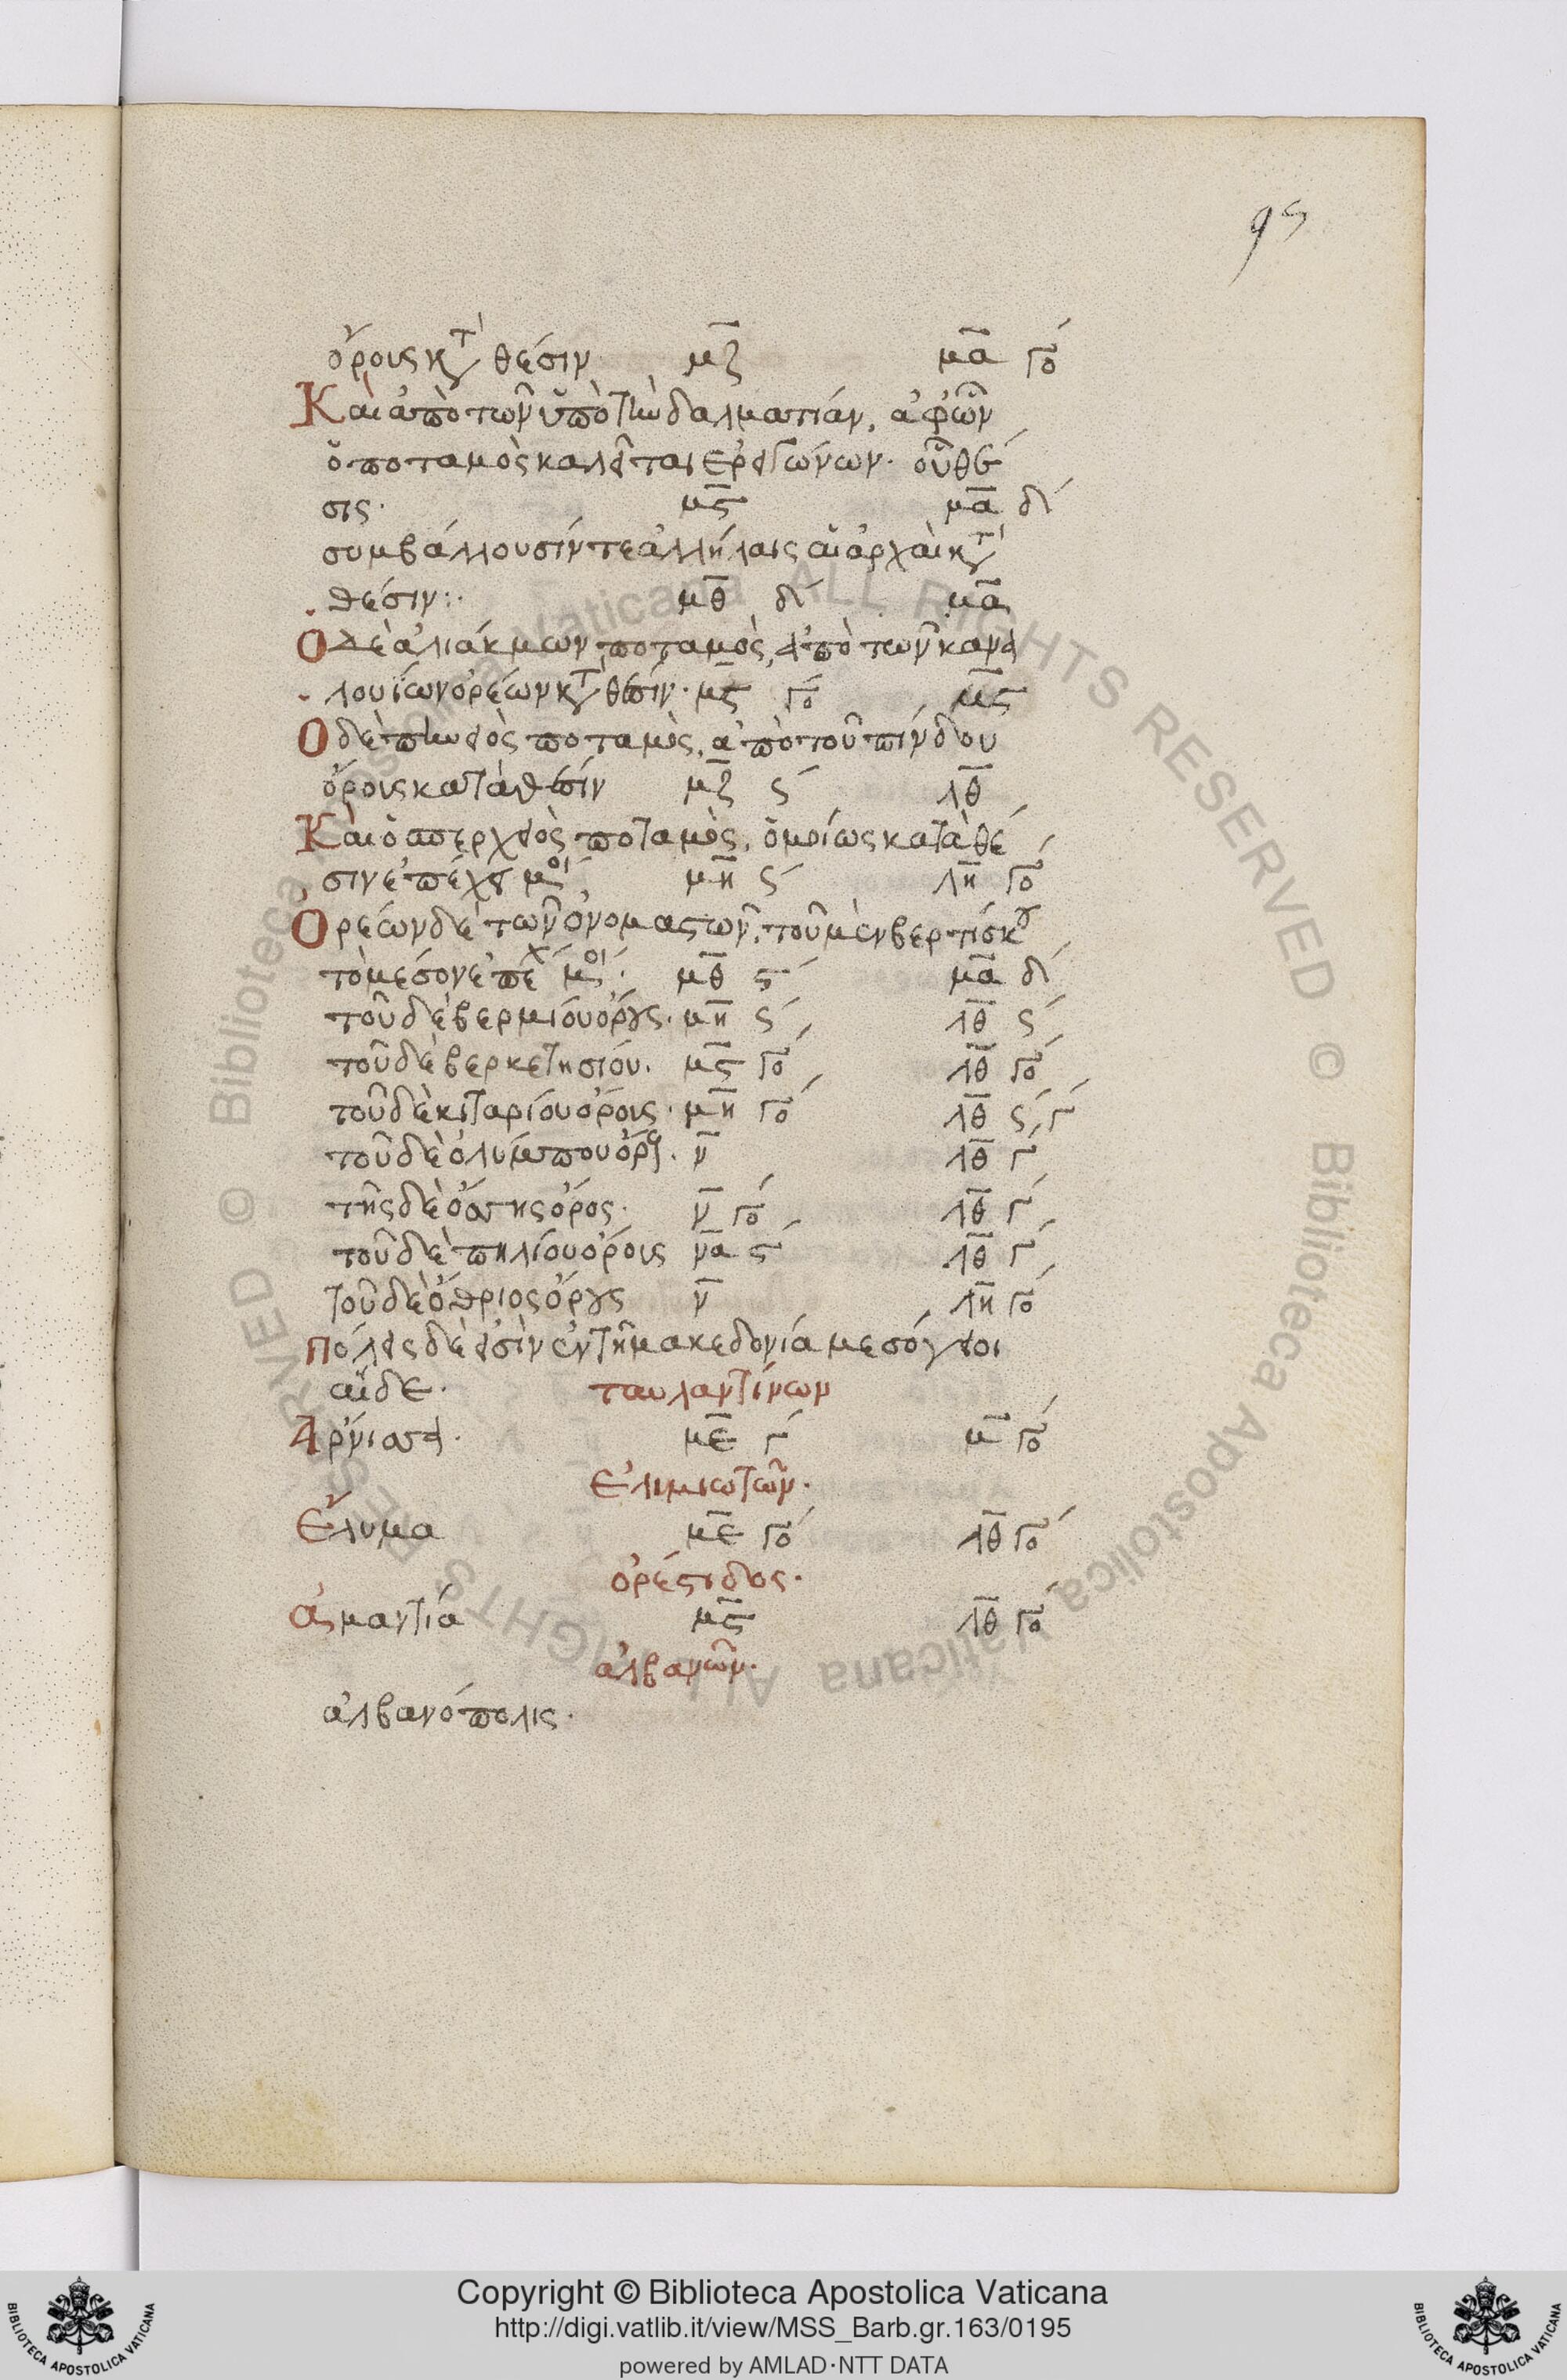 95
ὄρους κτ θέσιν μζ μα γο
Καὶ ἀπὸ τῶν ὑπὸ τὴν δαλματίαν, ἀφ ὧν
ὁ ποταμὸς καλεῖται ἐριγώνων. οὗ θέ
σις. μς μα δ
συμβάλλουσίν τε ἀλλήλαις αἱ ἀρχαὶ κτ
θέσιν: μθ δ μα
Ο δὲ ἁλιάκμων ποταμὸς, ἀπὸ τῶν κανα
λουίων ὀρέων κτ θέσιν. μς γο μς
Ο δὲ πηνειὸς ποταμὸς, ἀπὸ τοῦ πίνδου
ὄρους κατὰ θέσιν μζ ς λθ
Καὶ ὁ σπερχειὸς ποταμὸς, ὁμοίως κατὰ θέ
σιν ἐπέχει μοι μη ς λη γο
Ὀρέων δὲ τῶν ὀνομαστῶν, τοῦ μὲν βερτίσκου
τὸ μέσον ἐπέχ μοι. μθ ς μα δ
τοῦ δὲ βερμίου ὄρους. μη ς λθ ς
τοῦ δὲ βερκετησίου. μς γο λθ γο
τοῦ δὲ κιταρίου ὄρους. μη γο λθ ς γ
τοῦ δὲ ὀλύμπου ὄρς. ν λθ γ
τῆς δὲ ὄσσης ὄρος. ν γο λθ γ
τοῦ δὲ πηλίου ὄρους να ς λθ γ
τοῦ δὲ ὄθριος ὄρους ν λη γο
πόλεις δὲ εἰσὶν ἐν τῆ μακεδονία μεσόγειοι
αἵδε. ταυλαντίνων
Ἀρνισσα. με γ μ γο
ἐλιμιωτῶν.
Ἔλυμα με γο λθ γο
ὀρέστιδος.
ἀμαντία μς λθ γο
ἀλβανῶν.
ἀλβανόπολις.
© Biblioteca Apostolica Vaticana ALL RIGHTS RESERVED © Biblioteca Apostolica Vaticana ALL RIGHTS RESERVED
Copyright © Biblioteca Apostolica Vaticana
http://digi.vatlib.it/view/MSS_Barb.gr.163/0195
powered by AMLAD·NTT DATA
BIBLIOTECA APOSTOLICA VATICANA
BIBLIOTECA APOSTOLICA VATICANA